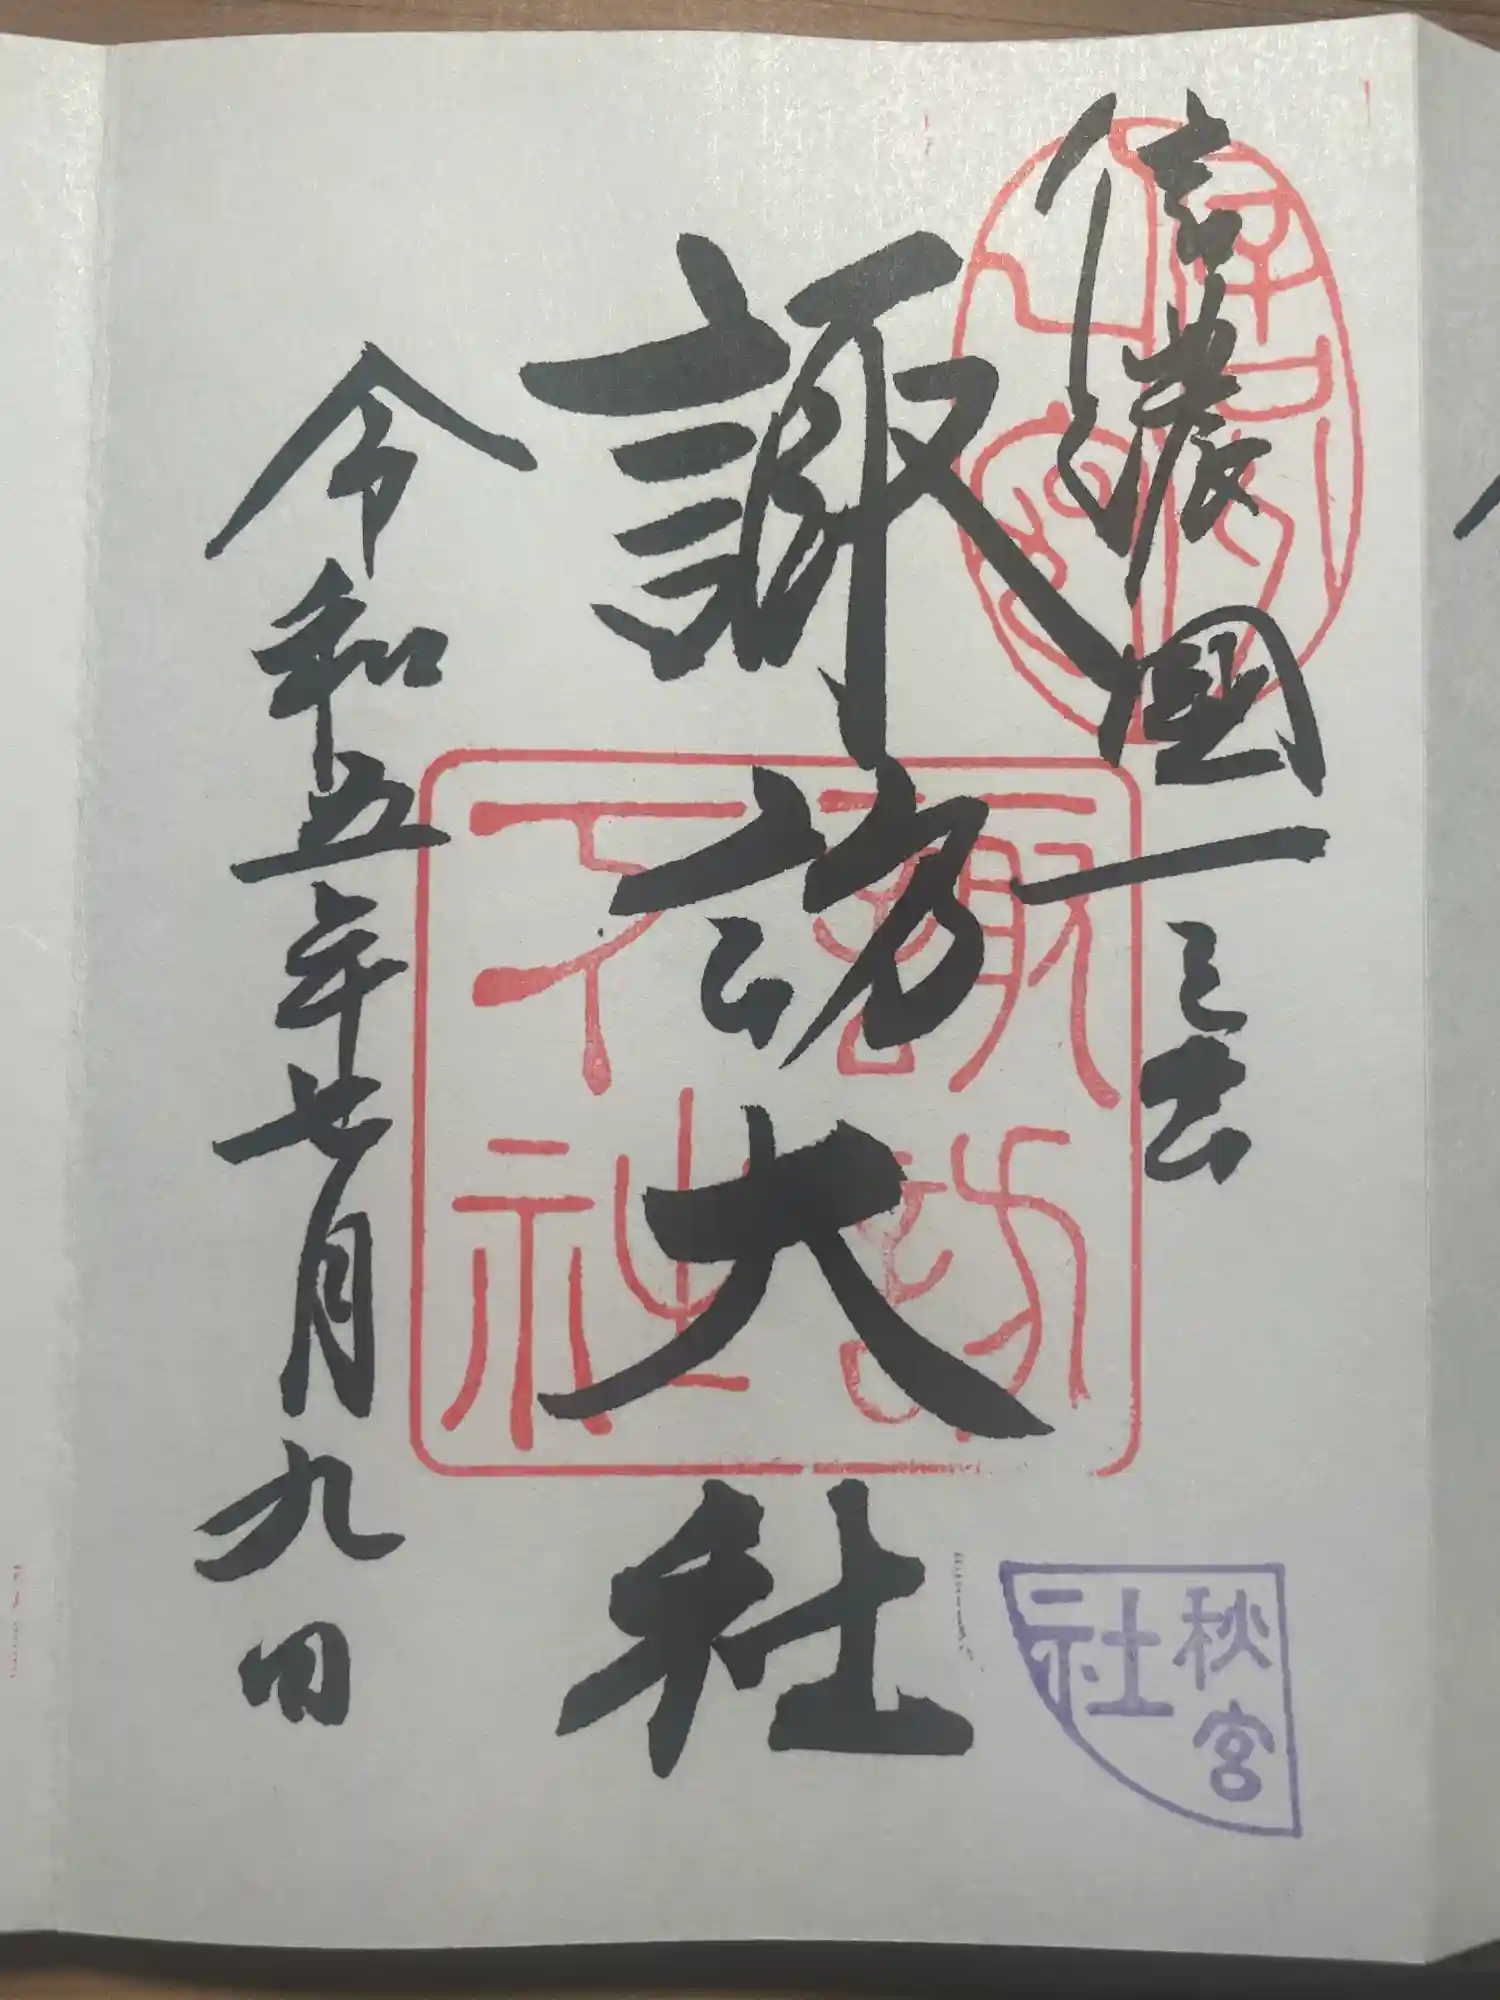 信濃國一之宮
諏訪大社
令和五年七月九日
諏訪
下社
秋宮
社